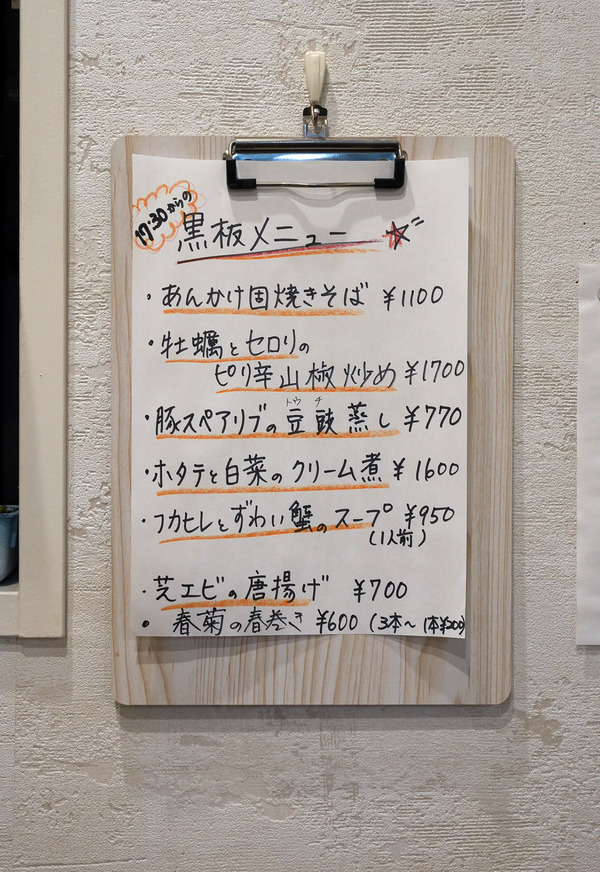 17:30からの
黒板メニュー
・あんかけ固焼きそば ¥1100
・牡蠣とセロリの
ピリ辛山椒炒め ¥1700
トウ チ
・豚スペアリブの豆鼓蒸し ¥770
・ホタテと白菜のクリーム煮 ¥1600
・フカヒレとずわい蟹のスープ ¥950
(1人前)
・芝エビの唐揚げ ¥700
・春菊の春巻き ¥600 (3本〜 1本¥200)